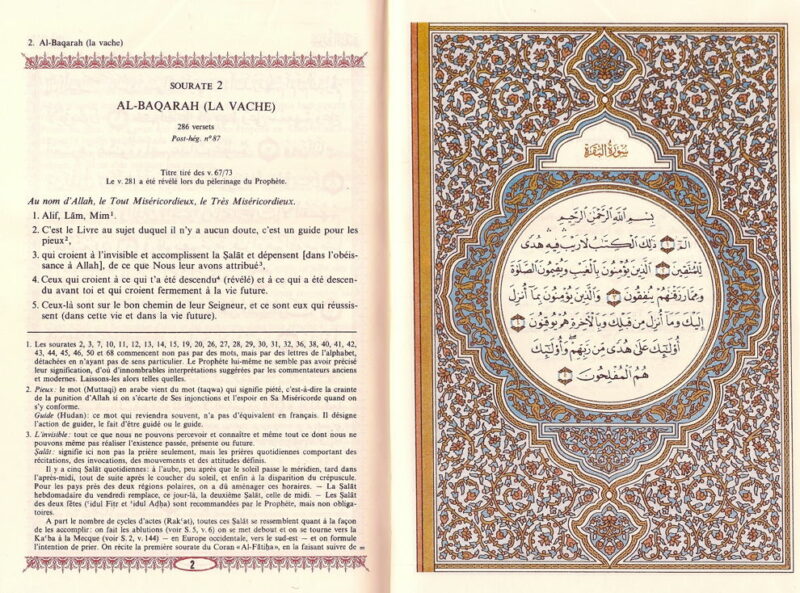 2. Al-Baqarah (la vache)
SOURATE 2
AL-BAQARAH (LA VACHE)
286 versets
Post-hég. n° 87
Titre tiré des v. 67/73
Le v. 281 a été révélé lors du pèlerinage du Prophète.
Au nom d'Allah, le Tout Miséricordieux, le Très Miséricordieux.
1. Alif, Lâm, Mim¹.
2. C'est le Livre au sujet duquel il n'y a aucun doute, c'est un guide pour les
pieux²,
3. qui croient à l'invisible et accomplissent la Ṣalāt et dépensent [dans l'obéis-
sance à Allah], de ce que Nous leur avons attribué³,
4. Ceux qui croient à ce qui t'a été descendu⁴ (révélé) et à ce qui a été descen-
du avant toi et qui croient fermement à la vie future.
5. Ceux-là sont sur le bon chemin de leur Seigneur, et ce sont eux qui réussis-
sent (dans cette vie et dans la vie future).
1. Les sourates 2, 3, 7, 10, 11, 12, 13, 14, 15, 19, 20, 26, 27, 28, 29, 30, 31, 32, 36, 38, 40, 41, 42,
43, 44, 45, 46, 50 et 68 commencent non pas par des mots, mais par des lettres de l'alphabet,
détachées en n'ayant pas de sens particulier. Le Prophète lui-même ne semble pas avoir précisé
leur signification, d'où d'innombrables interprétations suggérées par les commentaires anciens
et modernes. Laissons-les alors telles quelles.
2. Pieux: le mot (Muttaqi) en arabe vient du mot (taqwa) qui signifie piété, c'est-à-dire la crainte
de la punition d'Allah si on s'écarte de Ses injonctions et l'espoir en Sa Miséricorde quand on
s'y conforme.
Guide (Hudan): ce mot qui reviendra souvent, n'a pas d'équivalent en français. Il désigne
l'action de guider, le fait d'être guidé ou le guide.
3. L'invisible: tout ce que nous ne pouvons percevoir et connaître et même tout ce dont nous ne
pouvons même pas réaliser l'existence passée, présente ou future.
Ṣalāt: signifie ici non pas la prière seulement, mais les prières quotidiennes comportant des
récitations, des invocations, des mouvements et des attitudes définis.
Il y a cinq Ṣalāt quotidiennes: à l'aube, peu après que le soleil passe le méridien, tard dans
l'après-midi, tout de suite après le coucher du soleil, et enfin à la disparition du crépuscule.
Pour les pays près des deux régions polaires, on a dû aménager ces horaires. — La Ṣalāt
hebdomadaire du vendredi remplace, ce jour-là, la deuxième Ṣalāt, celle de midi. — Les Ṣalāt
des deux fêtes ('idul Fiṭr et 'idul Aḍḥa) sont recommandées par le Prophète, mais non obliga-
toires.
A part le nombre de cycles d'actes (Rak'at), toutes ces Ṣalāt se ressemblent quant à la façon
de les accomplir: on fait les ablutions (voir S. 5, v. 6) on se met debout et on se tourne vers la
Ka'ba à la Mecque (voir S. 2, v. 144) — en Europe occidentale, vers le sud-est — et on formule
l'intention de prier. On récite la première sourate du Coran «Al-Fātiḥa», en la faisant suivre de
2
سُورَةُ البَقَرَةِ
بِسْمِ ٱللَّهِ ٱلرَّحْمَٰنِ ٱلرَّحِيمِ
الٓمٓ ۝١ ذَٰلِكَ ٱلْكِتَٰبُ لَا رَيْبَ ۛ فِيهِ ۛ هُدًى
لِّلْمُتَّقِينَ ۝٢ ٱلَّذِينَ يُؤْمِنُونَ بِٱلْغَيْبِ وَيُقِيمُونَ ٱلصَّلَوٰةَ
وَمِمَّا رَزَقْنَٰهُمْ يُنفِقُونَ ۝٣ وَٱلَّذِينَ يُؤْمِنُونَ بِمَآ أُنزِلَ
إِلَيْكَ وَمَآ أُنزِلَ مِن قَبْلِكَ وَبِٱلْأَخِرَةِ هُمْ يُوقِنُونَ ۝٤
أُو۟لَٰٓئِكَ عَلَىٰ هُدًى مِّن رَّبِّهِمْ ۖ وَأُو۟لَٰٓئِكَ
هُمُ ٱلْمُفْلِحُونَ ۝٥